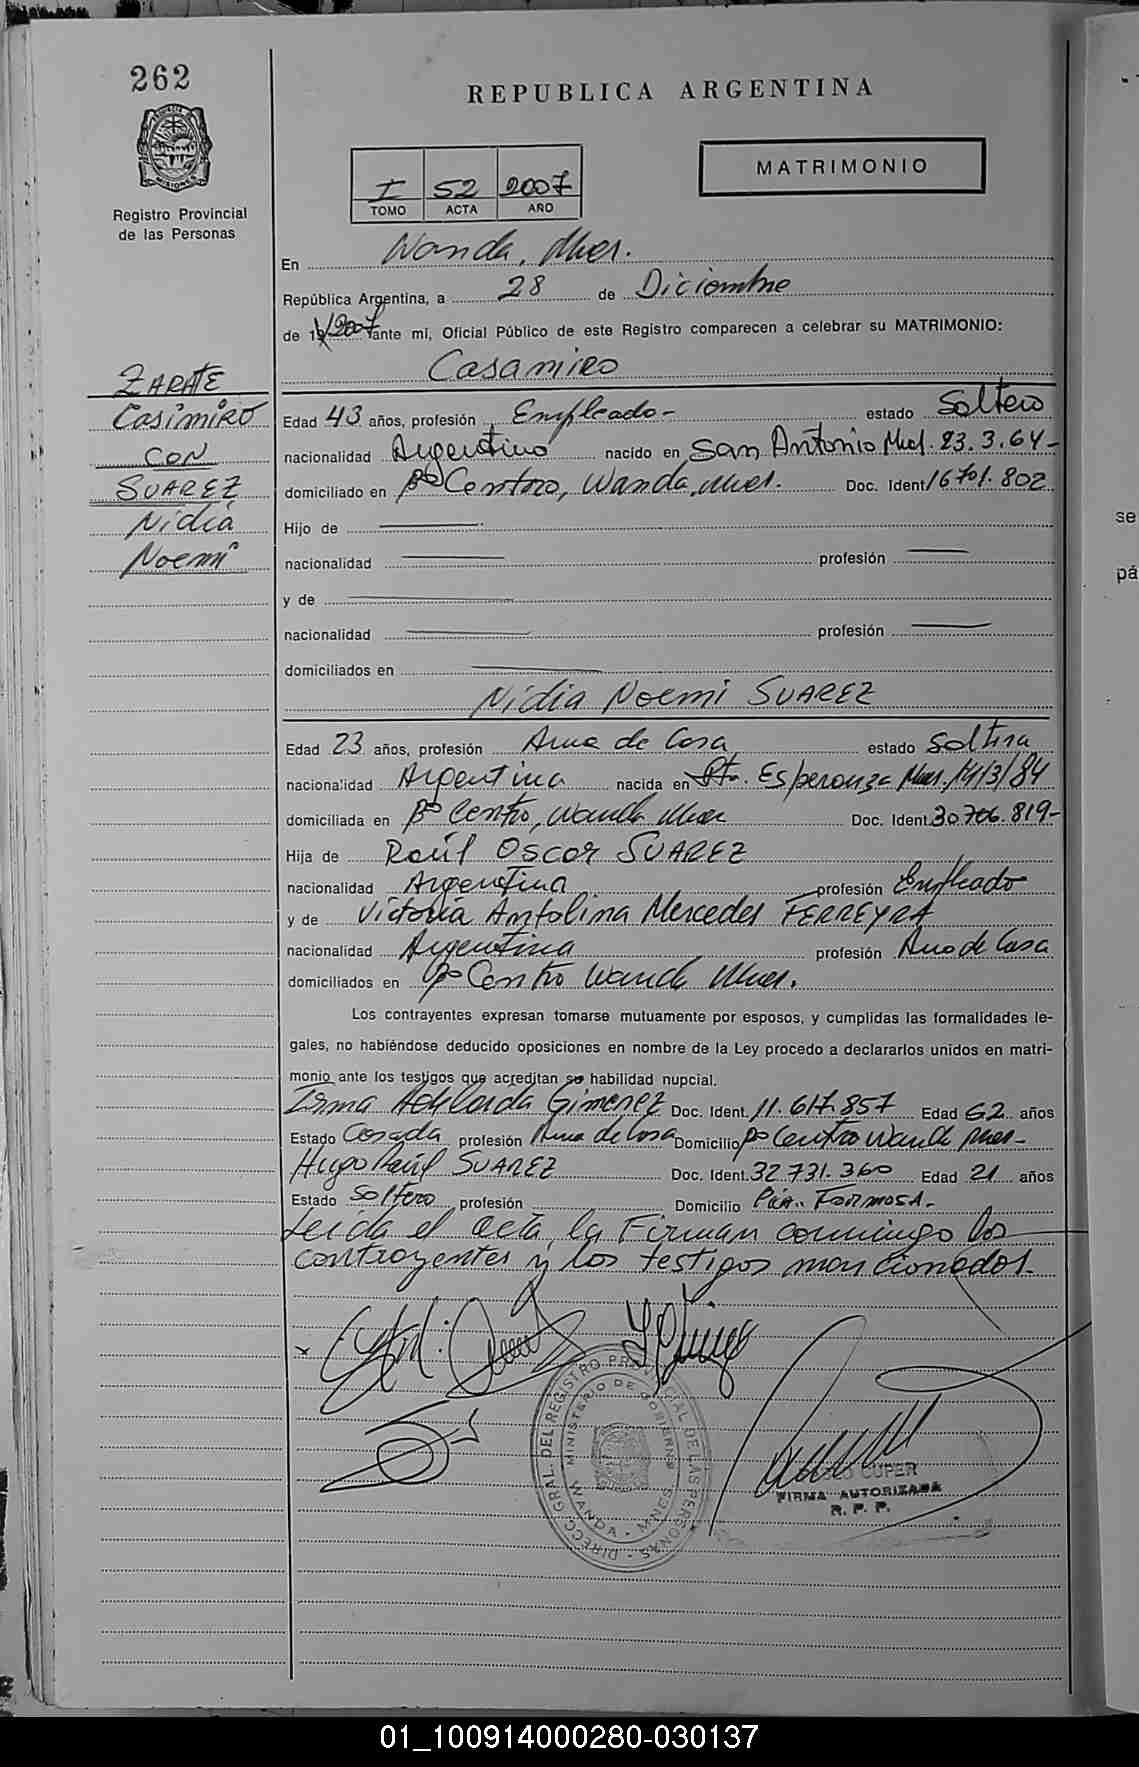 262
REPUBLICA ARGENTINA
PROVINCIA DE
MISIONES
Registro Provincial
de las Personas
I 52 2007
TOMO ACTA AÑO
MATRIMONIO
En Wanda, Mnes.
República Argentina, a 28 de Diciembre
de 19 2007 ante mi, Oficial Público de este Registro comparecen a celebrar su MATRIMONIO:
Casamiro
ZARATE
Casimiro
CON
SUAREZ
Nidia
Noemi
Edad 43 años, profesión Empleado- estado Soltero
nacionalidad Argentino nacido en San Antonio Mnes. 23.3.64-
domiciliado en Bº Centro, Wanda, Mnes. Doc. Ident 16.701.802
Hijo de
nacionalidad profesión
y de
nacionalidad profesión
domiciliados en
Nidia Noemi SUAREZ
Edad 23 años, profesión Ama de Casa estado Soltera
nacionalidad Argentina nacida en Pto. Esperanza Mnes. 14/3/84
domiciliada en Bº Centro, Wanda Mnes Doc. Ident 30.706.819-
Hija de Raúl Oscar SUAREZ
nacionalidad Argentina profesión Empleado
y de Victoria Antolina Mercedes FERREYRA
nacionalidad Argentina profesión Ama de Casa
domiciliados en Bº Centro Wanda Mnes.
Los contrayentes expresan tomarse mutuamente por esposos, y cumplidas las formalidades le-
gales, no habiéndose deducido oposiciones en nombre de la Ley procedo a declararlos unidos en matri-
monio ante los testigos que acreditan su habilidad nupcial.
Irma Adelaida Gimenez Doc. Ident. 11.617.857 Edad 62 años
Estado Casada profesión Ama de Casa Domicilio Bº Centro Wanda Mnes-
Hugo Raúl SUAREZ Doc. Ident. 32.731.360 Edad 21 años
Estado Soltero profesión Domicilio FORMOSA-
Leida el acta, la Firman conmingo los
contrayentes y los testigos mencionados.
DIRECC. GRAL. DEL REGISTRO PROVINCIAL DE LAS PERSONAS
MINISTERIO DE GOBIERNO
WANDA - MNES.
CUPER
FIRMA AUTORIZADA
R. P. P.
se
pá
01_100914000280-030137